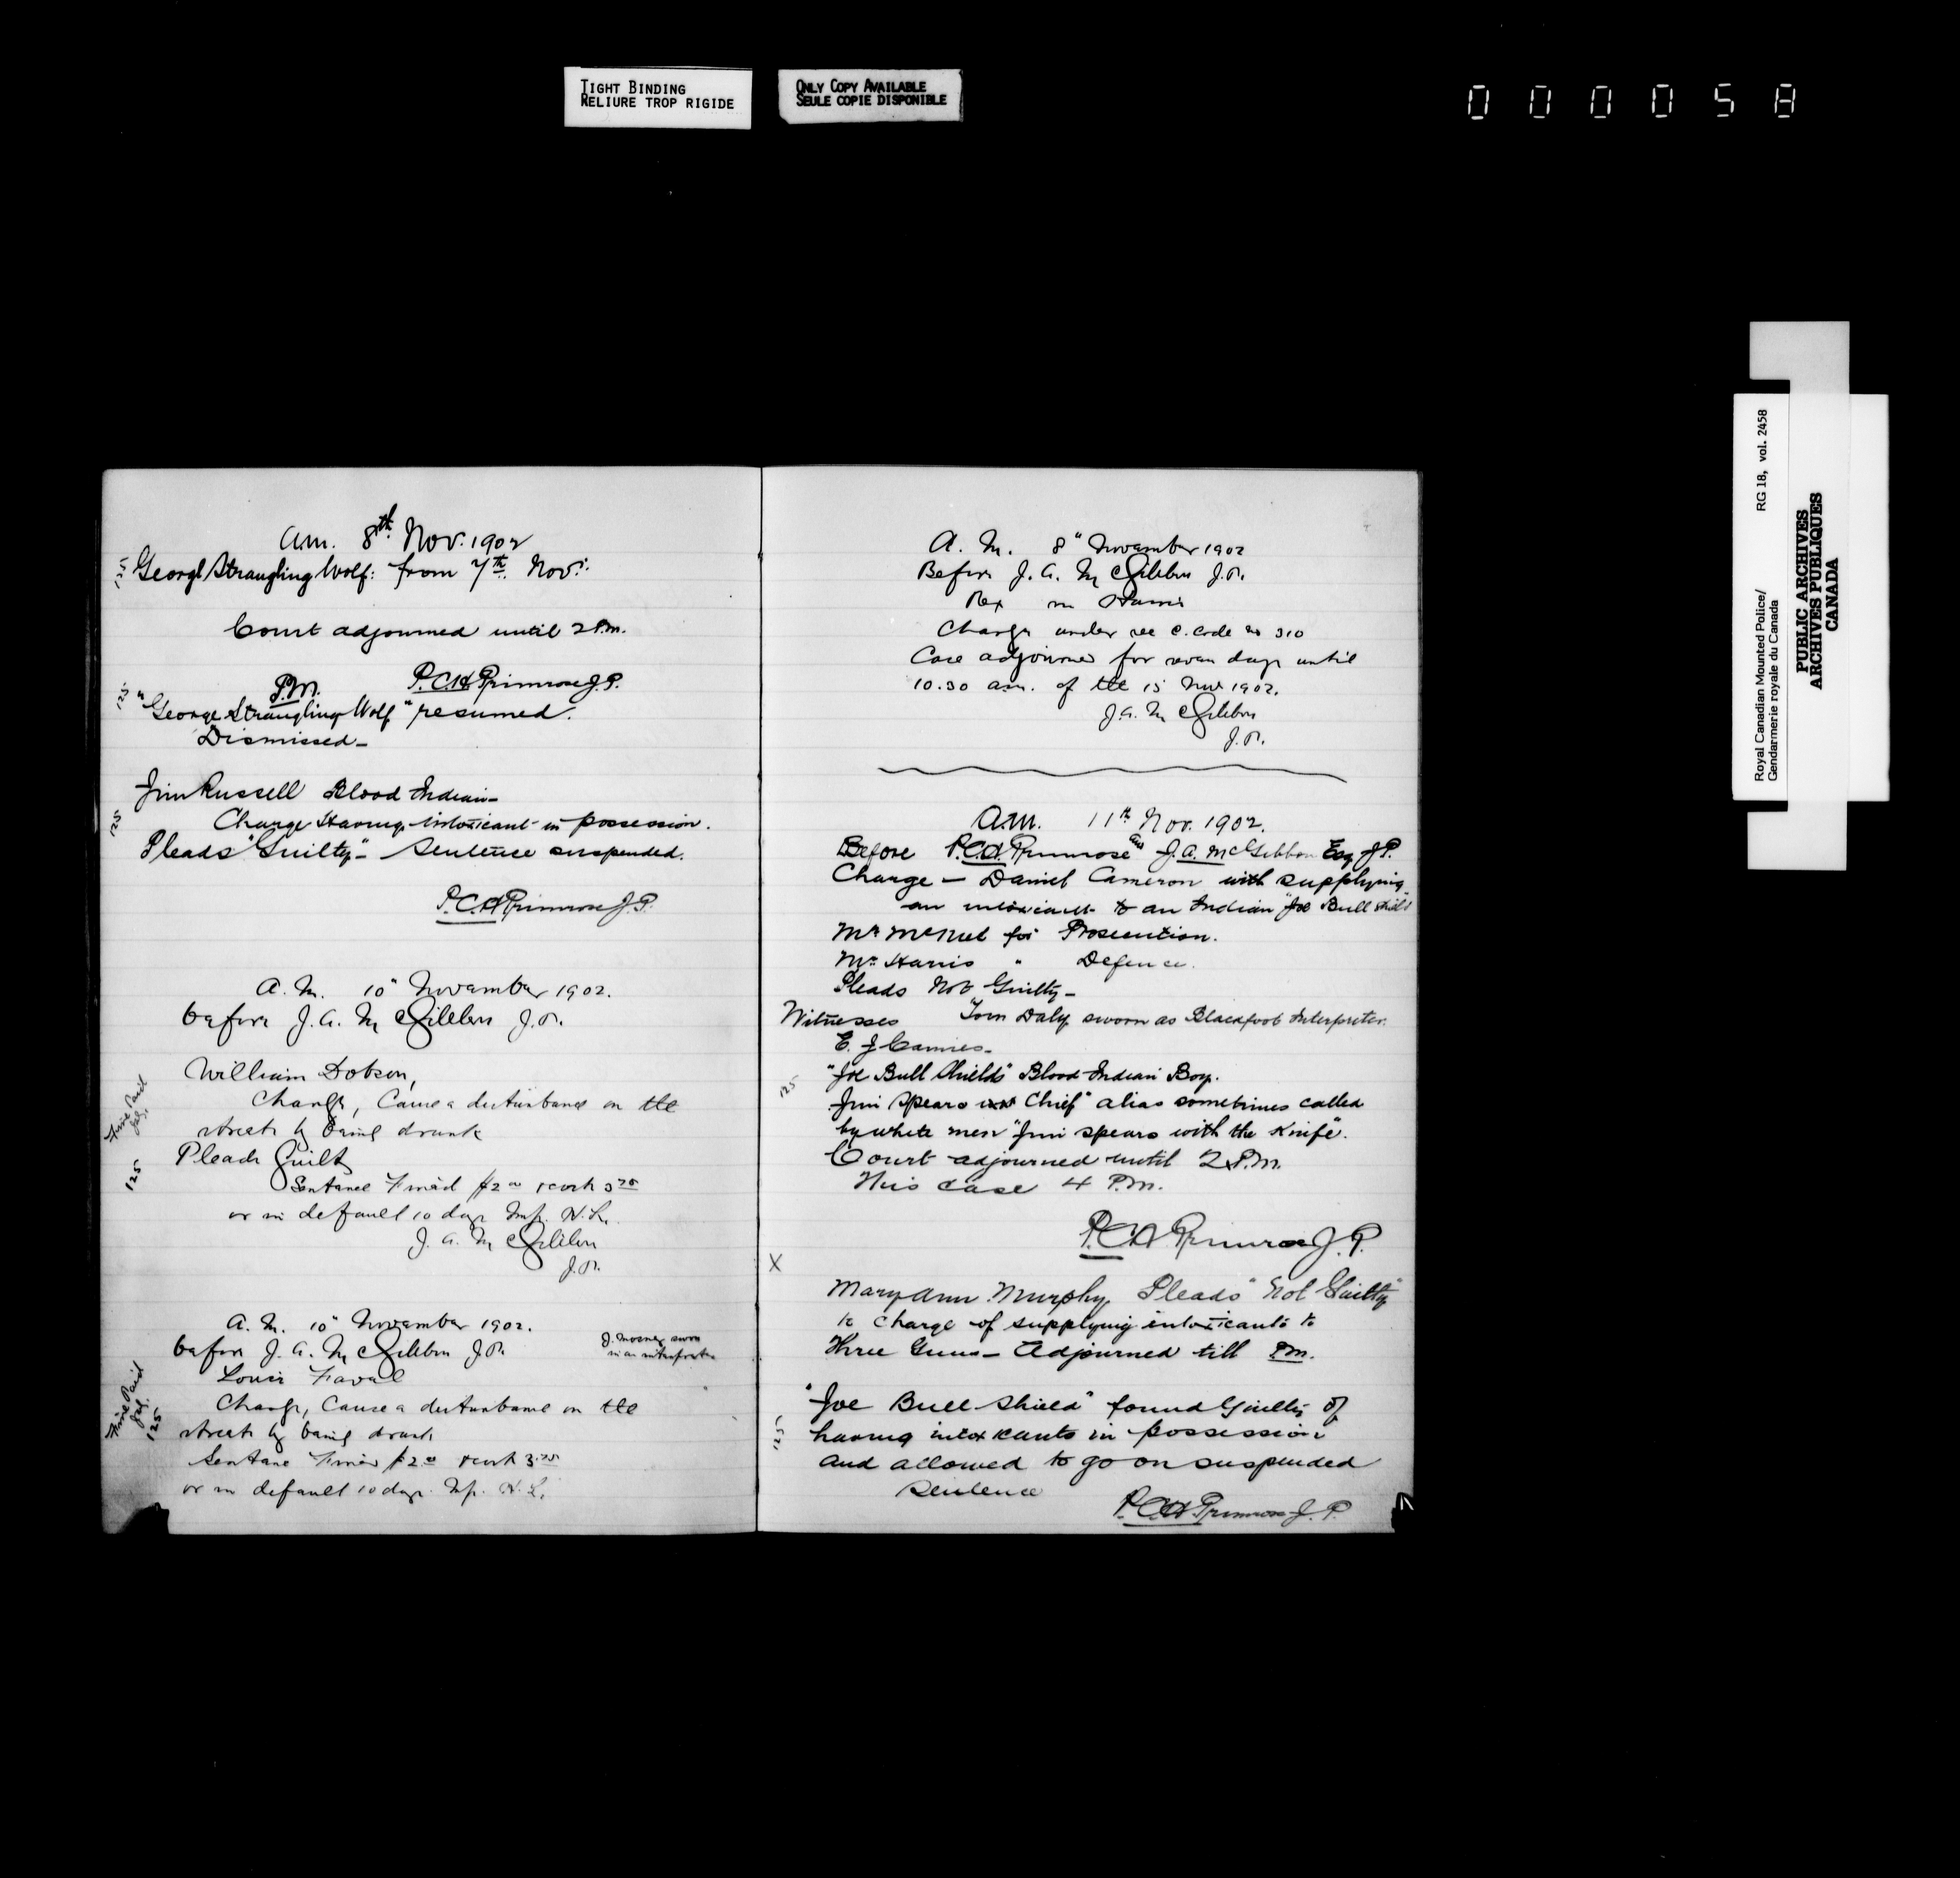 TIGHT BINDING
RELIURE TROP RIGIDE
ONLY COPY AVAILABLE
SEULE COPIE DISPONIBLE
000058
Royal Canadian Mounted Police/
Gendarmerie royale du Canada
RG 18, vol. 2458
PUBLIC ARCHIVES
ARCHIVES PUBLIQUES
CANADA
a.m. 8th Nov. 1902
125 George Strangling Wolf: from 7th Nov:
Court adjourned until 2 P.m.
P.C.H. Primrose J.P.
P.M.
125 "George Strangling Wolf" resumed.
Dismissed—
Jim Russell Blood Indian—
125 Charge Having intoxicant in possession.
Pleads "Guilty"— Sentence suspended.
P.C.H. Primrose J.P.
A.M. 10" November 1902.
before J.A. McGibbon J.P.
William Dobson,
Charge, Cause a disturbance on the
streets by being drunk
Fine Paid
125
Pleads Guilty
Sentence Fined $2.00 & costs 3.75
or in default 10 days Imp. H.L.
J.A. McGibbon
J.P.
A.M. 10" November 1902.
before J.A. McGibbon J.P.
J. sworn
in as interpreter
Louis Faval
Fine Paid
125
Charge, Cause a disturbance on the
streets by being drunk
Sentence Fined $2.00 & costs 3.75
or in default 10 days Imp. H.L.
A.M. 8" November 1902
Before J.A. McGibbon J.P.
Rex vs Harris
Charge under sec C. Code 310
Case adjourned for seven days until
10.30 a.m. of the 15 Nov 1902.
J.A. McGibbon
J.P.
a.m. 11th Nov. 1902.
Before P.C.H. Primrose and J.A. McGibbon Esq J.P.
Charge — Daniel Cameron with supplying
an intoxicant to an Indian "Joe Bull Shield"
Mr McNeil for Prosecution.
Mr. Harris " Defence.
Pleads Not Guilty—
Witnesses Tom Daly sworn as Blackfoot Interpreter.
E. J. Camies—
"Joe Bull Shields" Blood Indian Boy.
125
Jim Spears Chief" alias sometimes called
by white men "Jim spears with the Knife".
Court adjourned until 2 P.M.
This case 4 P.M.
P.C.H. Primrose J.P.
X
Mary Ann Murphy Pleads "Not Guilty"
to charge of supplying intoxicants to
Three Guns— Adjourned till P.M.
"Joe Bull Shield" found Guilty of
125 having intoxicants in possession
and allowed to go on suspended
sentence
P.C.H. Primrose J.P.